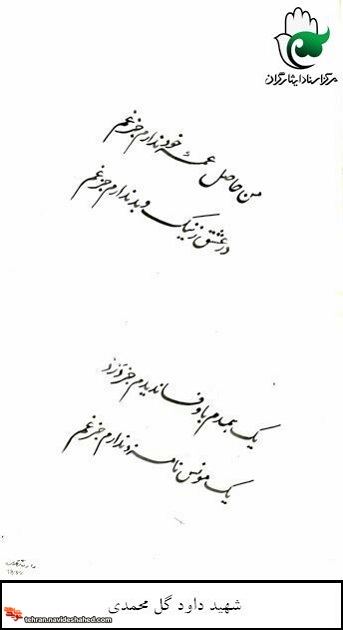 مرکز اسناد ایثارگران
من حاصل عمر خود ندارم جز غم
در عشق ز نیک و بد ندارم جز غم
یک همدم با وفا ندیدم جز درد
یک مونس نامزد ندارم جز غم
شهید داود گل محمدی
tehran.navideshahed.com